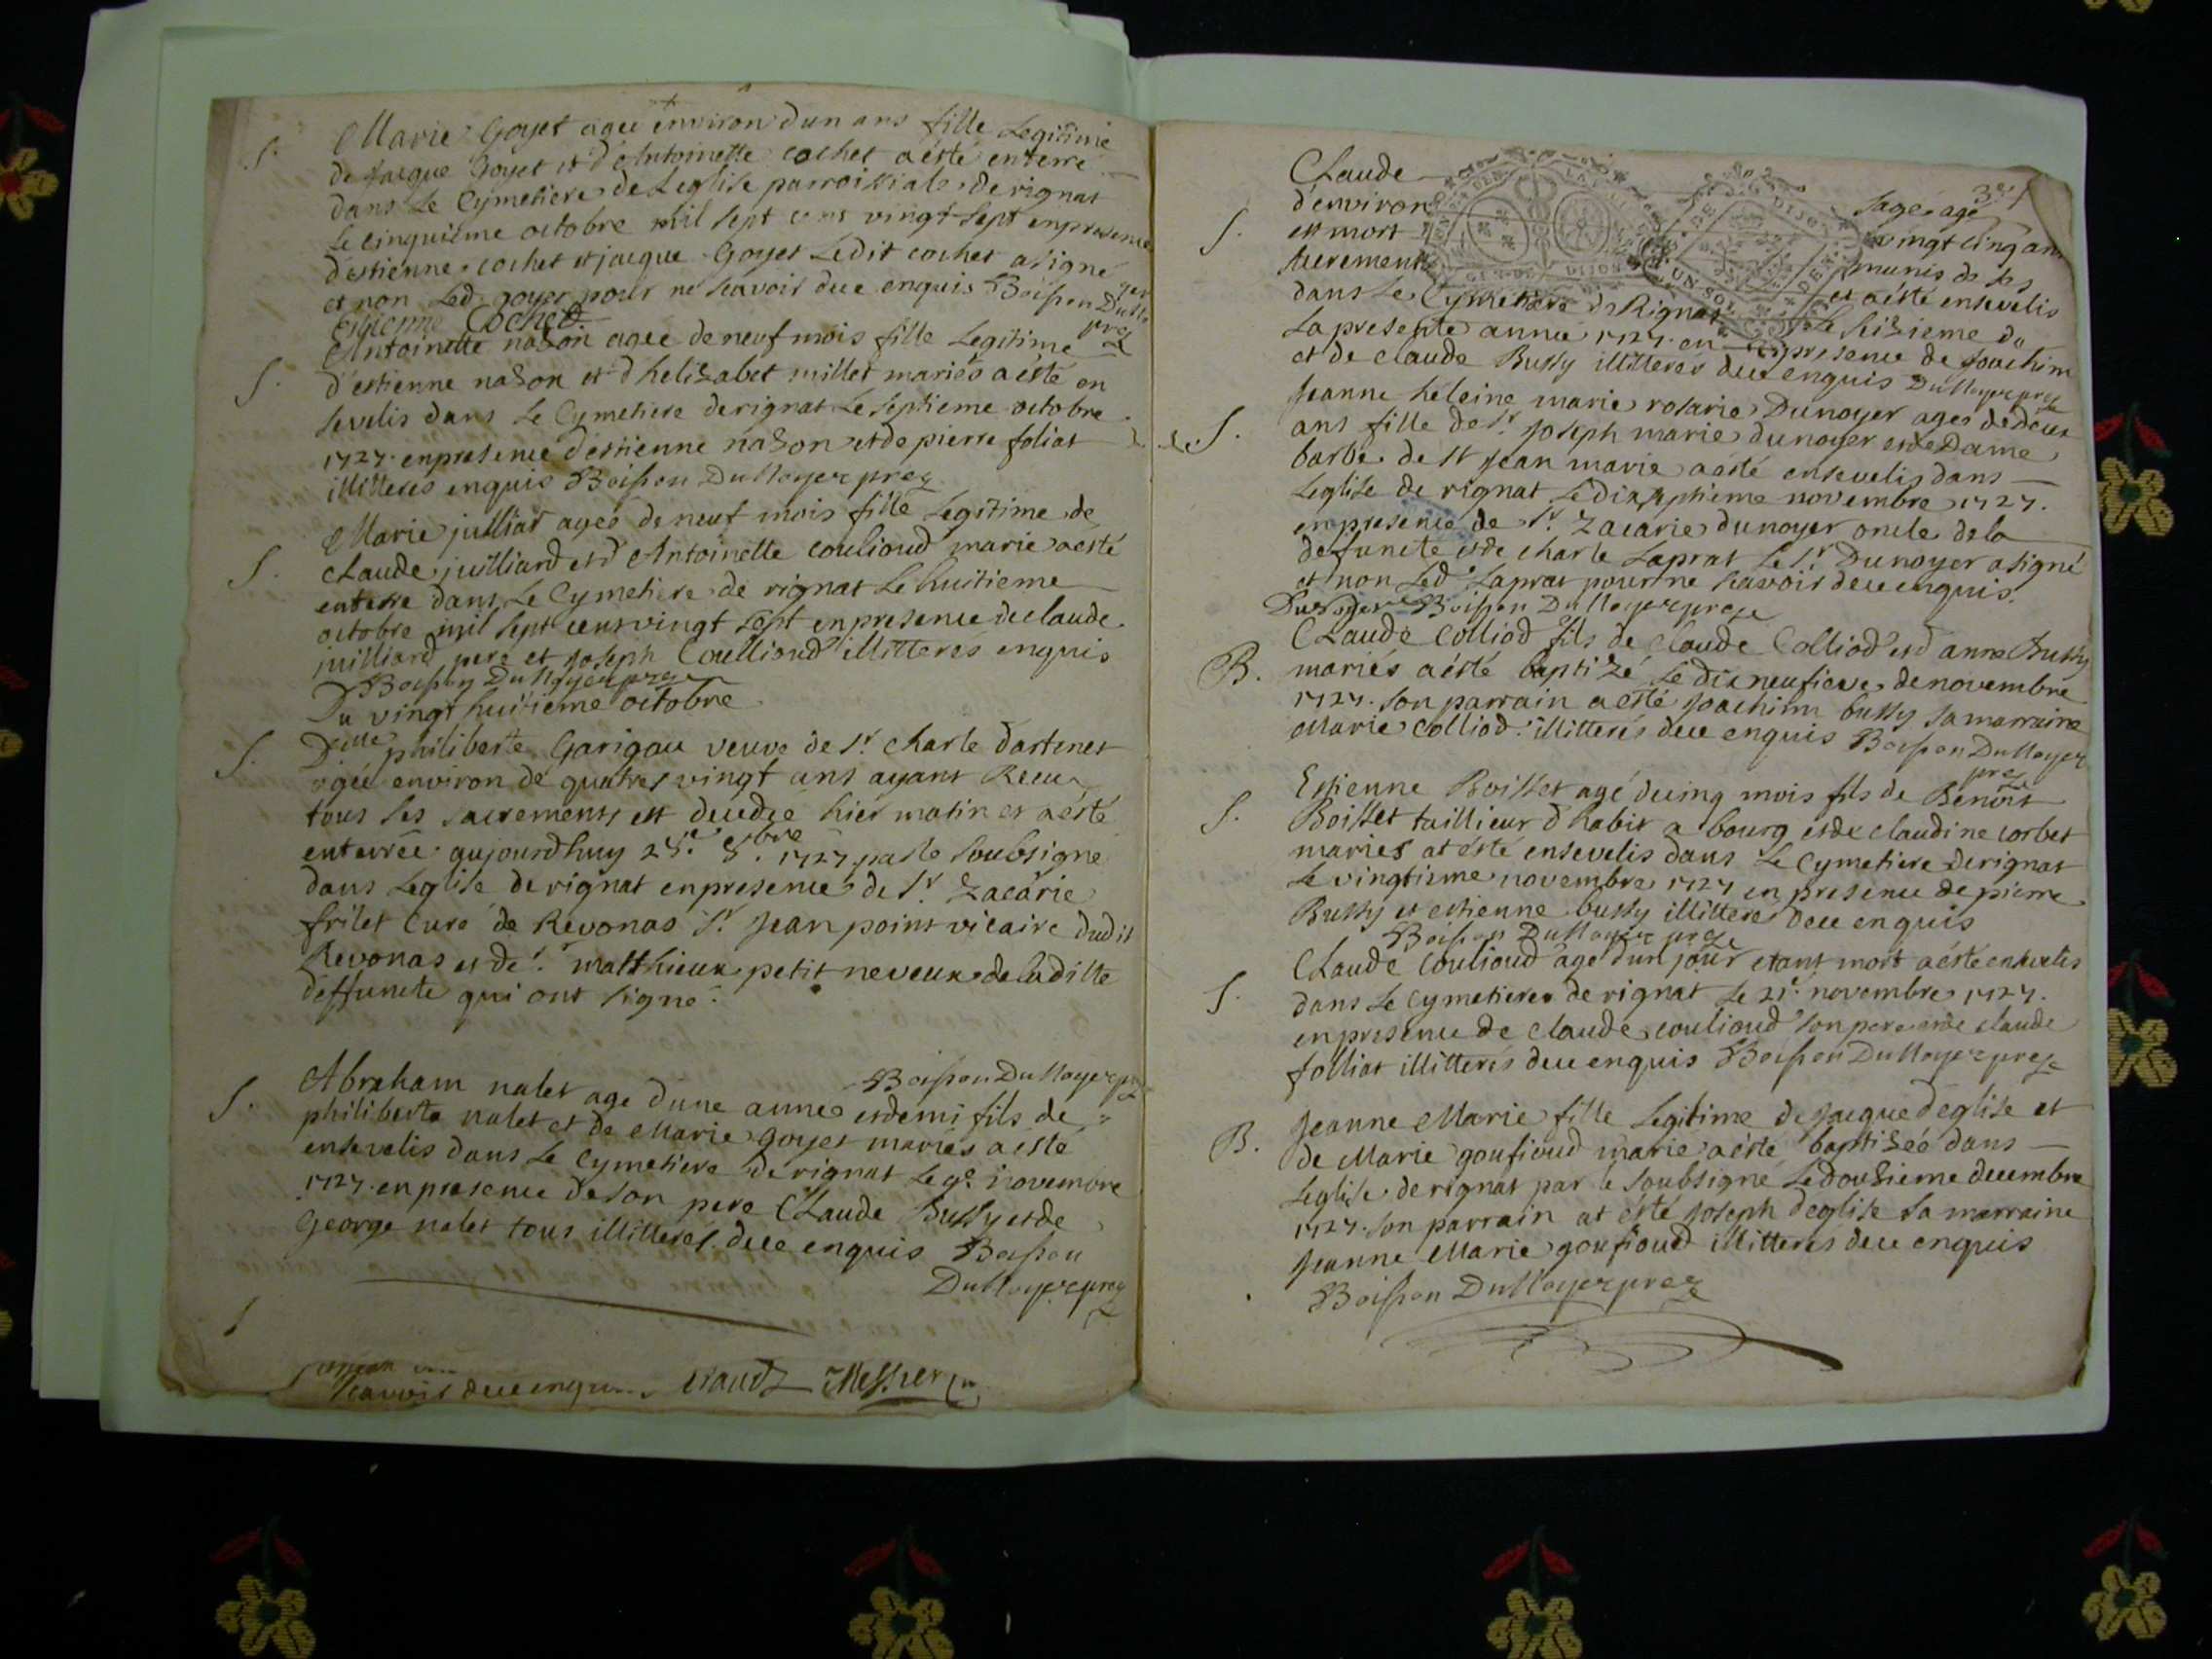 S. Marie Goyet agee environ dun ans fille Legitime
de Jacque Goyet et d'Antoinette cochet a été enterré
dans Le Cymetiere de Leglise parroissiale de rignat
Le cinquième octobre mil sept cens vingt sept enpresence
d'estienne cochet et jacque Goyet Ledit cochet a signé
et non Led. goyer pour ne scavoir dece enquis Boisson Du Noyer
Estienne Cochet
pre
S. Antoinette nason agee de neuf mois fille Legitime
d'estienne nason et d'helizabet millet mariés a esté en
sevelis dans Le Cymetiere de rignat Le septieme octobre
1727. enpresence d'estienne nason et de pierre foliat
illitteres enquis Boisson Du Noyer pre
S. Marie julliar ageé de neuf mois fille Legitime de
Claude juilliard et d'Antoinette coulioud marie a esté
enterre dans Le Cymetiere de rignat Le huitieme
octobre mil sept cens vingt sept enpresence de claude
juilliard pere et Joseph Coulliond illitterés enquis
Boisson Du Noyer pre
Du vingt huitieme octobre
S. Dlle philiberte Garigau veuve de Sr. charle dartenet
agée environ de quatre vingt ans ayant Receu
tous ses sacrements est decedée hier matin et a esté
enterrée aujourdhuy 28e. 8bre. 1727 par le soubsigné
dans Leglise de rignat enpresence de Sr. Zacarie
frilet Curé de Revonas Sr. Jean point vicaire dudit
Revonas et de Sr. matthieux petit neveux de ladilte
deffuncte qui ont signé.
Boisson Du Noyer pre
S. Abraham nalet age dune année et demi fils de
philiberte nalet et de Marie Goyet mariés a esté
ensevelis dans Le Cymetiere de rignat Le 9e. novembre
1727. enpresence de son pere Claude Bussy et de
George nalet tous illitterés dece enquis Boisson
Du Noyer pre
scavoir dece enquis
Claude
sage agé
d'environ
vingt cinq ans
S. est mort
munis de ses
sacrements
et a été ensevelis
dans Le Cymetiere de Rignat Le sizieme de
La presente année 1727. en presence de Joachim
et de claude Bussy illitterés dece enquis Du Noyer pre
S. Jeanne heleine marie rosarie Dunoyer ageé de deux
ans fille de Sr. Joseph marie dunoyer et de Dame
barbe de St Jean marie a esté ensevelis dans
Leglise de rignat Le dix septieme novembre 1727.
enpresence de Sr. Zacarie dunoyer oncle de la
defuncte et de charle Laprat Le Sr Dunoyer a signé
et non Led. Laprat pour ne scavoir dece enquis.
Dunoyer Boisson Du Noyer pre
B. Claude Colliod fils de Claude Colliod et d'anne Bussy
mariés a été baptizé Le dix neufieve de novembre
1727. son parrain a esté Joachim bussy sa marraine
Marie Colliod. illitterés dece enquis Boisson Du Noyer
pre
S. Estienne Boisset agé de cinq mois fils de Benoist
Boisset taillieur d'habit a bourg et de claudine corbet
mariés at été ensevelis dans Le Cymetiere de rignat
Le vingtieme novembre 1727 en presence de pierre
Bussy et estienne bussy illittere dece enquis
Boisson Du Noyer pre
S. Claude Coulioud agé dun jour etant mort a été ensevelis
dans Le Cymetiere de rignat Le 21e. novembre 1727.
enpresence de Claude coulioud son pere et de claude
folliat illitterés dece enquis Boisson Du Noyer pre
B. Jeanne Marie fille Legitime de Jacque deglise et
de Marie goufioud marie a été baptizée dans
Leglise de rignat par le soubsigné Le douzieme decembre
1727. son parrain at été Joseph deglise sa marraine
Jeanne Marie goufioud illitterés dece enquis
Boisson Du Noyer pre